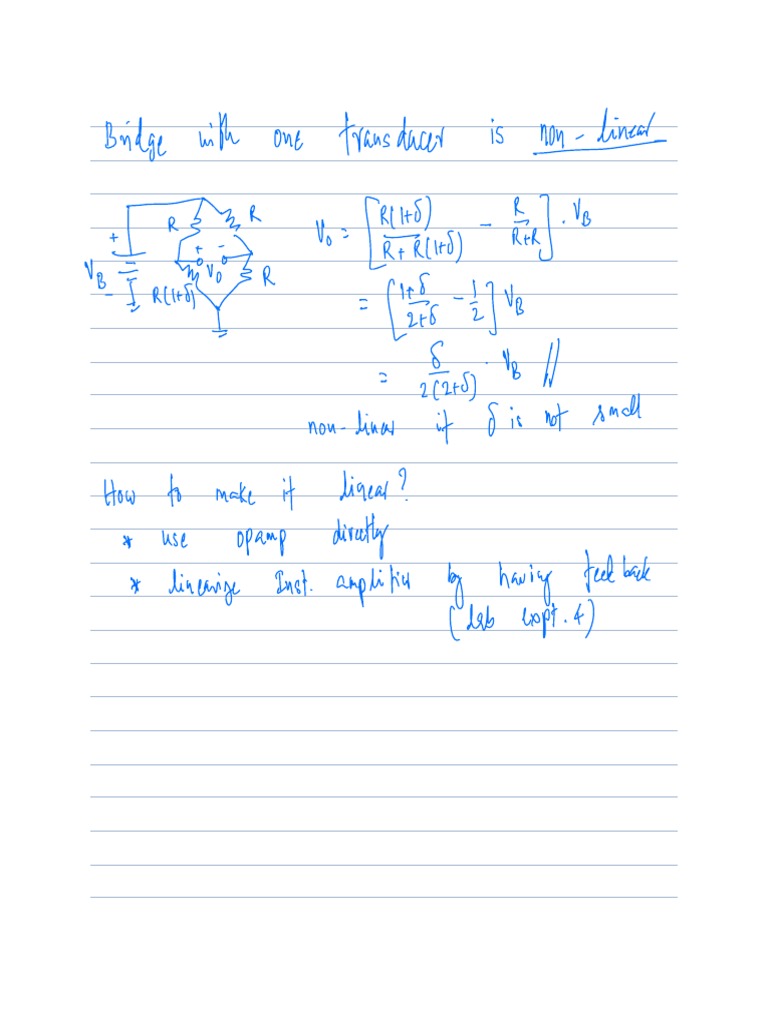 Bridge with one transducer is non-linear
R R
+ + -
V_B V_0 R
- R(1+δ)
V_0 = [R(1+δ)/(R+R(1+δ)) - R/(R+R)] . V_B
= [(1+δ)/(2+δ) - 1/2] V_B
= δ/(2(2+δ)) . V_B //
non-linear if δ is not small
How to make it linear?
* use opamp directly
* linearize Inst. amplifier by having feedback
(Lab expt. 4)